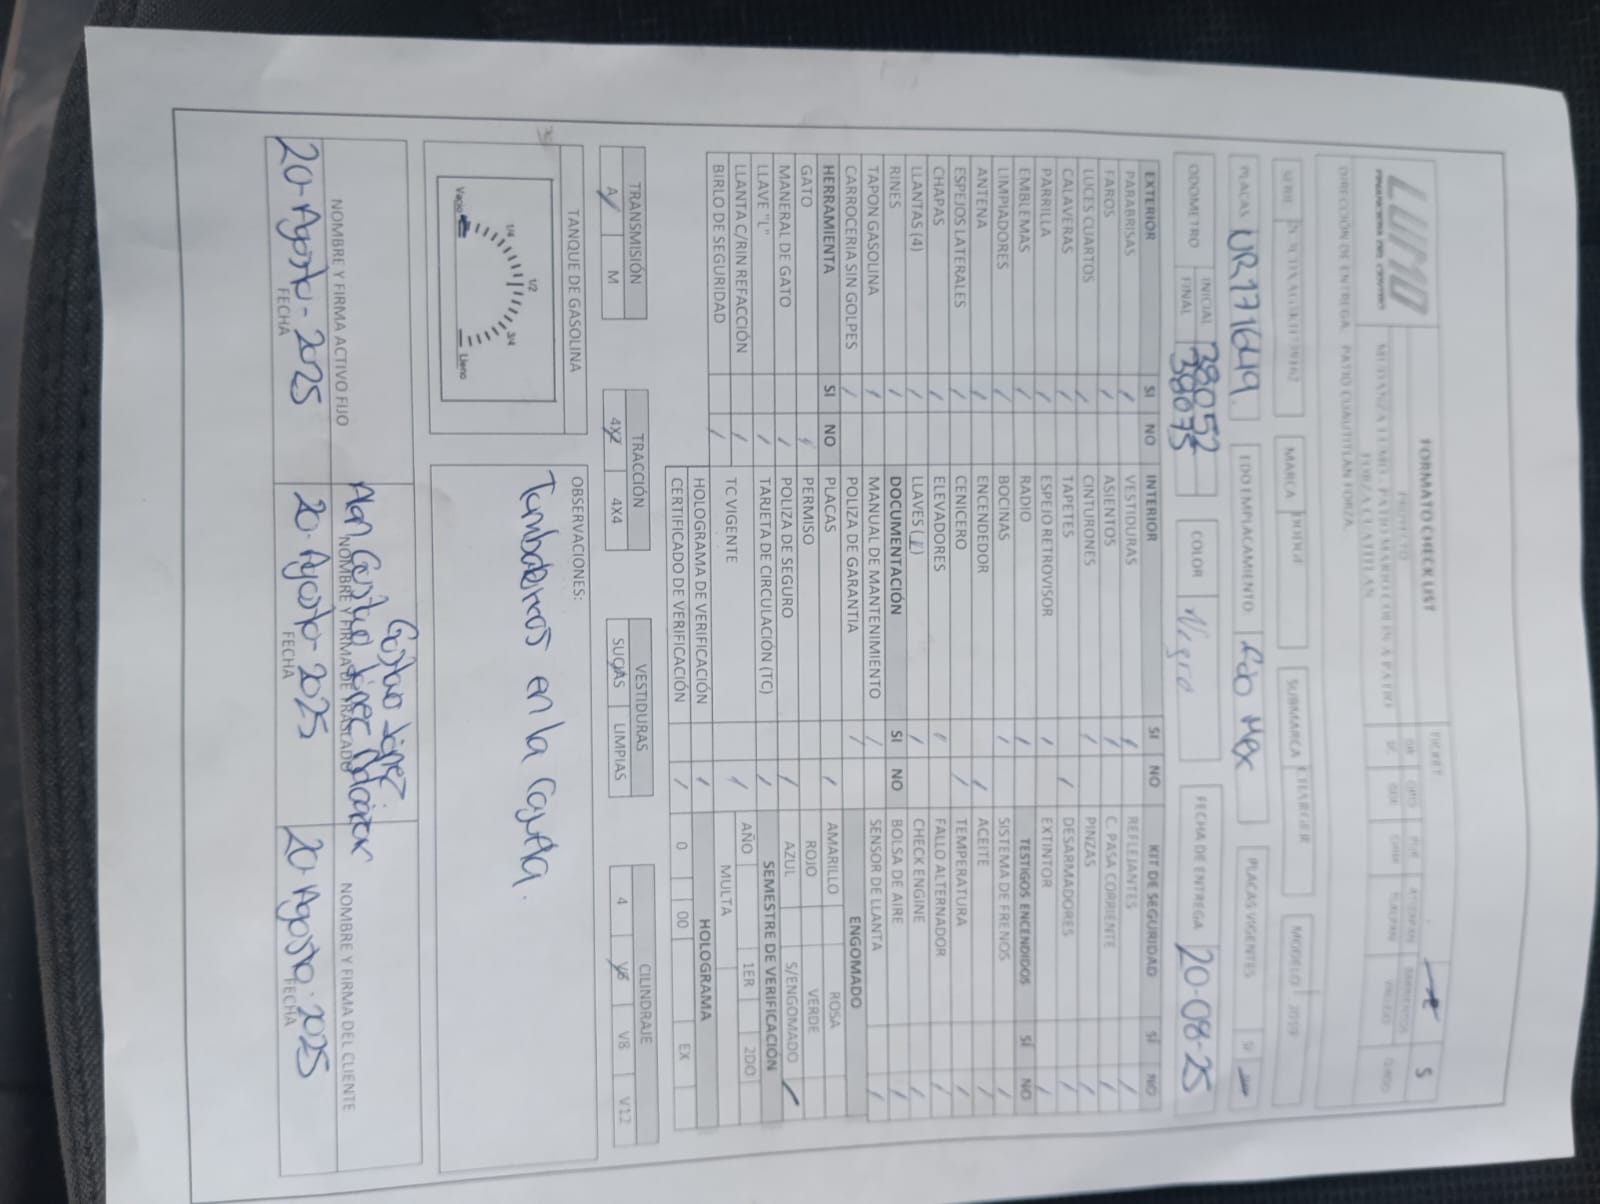 LUMO
FINANCIERA DEL CENTRO
FORMATO CHECK LIST
PROYECTO
TICKET
S
DIRECCIÓN DE ENTREGA: PATIO CUAUTITLAN FORZA.
SERIE
MARCA DODGE
SUBMARCA CHARGER
MODELO 2019
PLACAS URZ171649
EDO EMPLACAMIENTO:
PLACAS VIGENTES SI
ODOMETRO INICIAL 38052
FINAL 38073
COLOR Negro
FECHA DE ENTREGA 20-08-25
EXTERIOR SI NO INTERIOR SI NO KIT DE SEGURIDAD SÍ NO
PARABRISAS / VESTIDURAS / REFLEJANTES /
FAROS / ASIENTOS / C. PASA CORRIENTE /
LUCES CUARTOS / CINTURONES / PINZAS /
CALAVERAS / TAPETES / DESARMADORES /
PARRILLA / ESPEJO RETROVISOR / EXTINTOR /
EMBLEMAS / RADIO / TESTIGOS ENCENDIDOS SÍ NO
LIMPIADORES / BOCINAS / SISTEMA DE FRENOS /
ANTENA / ENCENDEDOR / ACEITE /
ESPEJOS LATERALES / CENICERO / TEMPERATURA /
CHAPAS / ELEVADORES / FALLO ALTERNADOR /
LLANTAS (4) / LLAVES ( ) / CHECK ENGINE /
RINES / DOCUMENTACIÓN SI NO BOLSA DE AIRE /
TAPON GASOLINA / MANUAL DE MANTENIMIENTO / SENSOR DE LLANTA /
CARROCERIA SIN GOLPES / POLIZA DE GARANTIA / ENGOMADO
HERRAMIENTA SI NO PLACAS / AMARILLO ROSA
GATO / PERMISO ROJO VERDE
MANERAL DE GATO / POLIZA DE SEGURO / AZUL S/ENGOMADO /
LLAVE "L" / TARJETA DE CIRCULACIÓN (TC) / SEMESTRE DE VERIFICACIÓN
LLANTA C/RIN REFACCIÓN / TC VIGENTE / AÑO 1ER 2DO
MULTA
BIRLO DE SEGURIDAD / HOLOGRAMA DE VERIFICACIÓN / HOLOGRAMA
CERTIFICADO DE VERIFICACIÓN / 0 00 EX
TRANSMISIÓN TRACCIÓN VESTIDURAS CILINDRAJE
A M 4X2 4X4 SUCIAS LIMPIAS 4 V6 V8 V12
TANQUE DE GASOLINA
Vacio 1/4 1/2 3/4 Lleno
OBSERVACIONES:
Tumbaburros en la Cajuela.
NOMBRE Y FIRMA ACTIVO FIJO
NOMBRE Y FIRMA DE TRASLADO
NOMBRE Y FIRMA DEL CLIENTE
20-Agosto-2025 20-Agosto-2025 20-Agosto-2025
FECHA FECHA FECHA